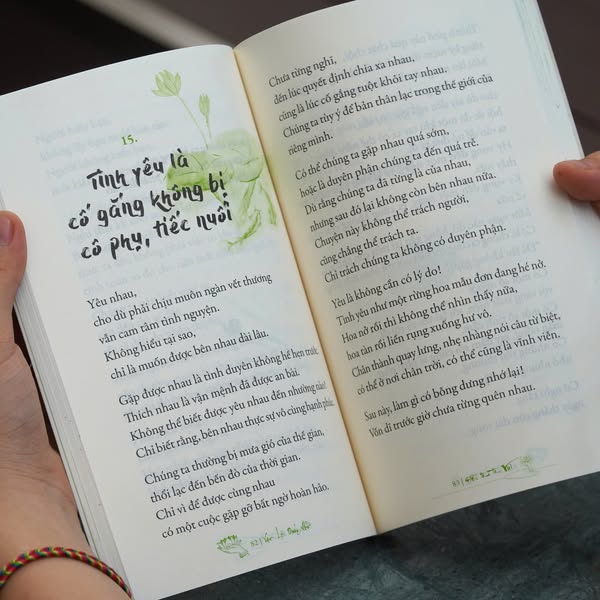 15.
Tình yêu là
cố gắng không bị
cô phụ, tiếc nuối
Yêu nhau,
cho dù phải chịu muôn ngàn vết thương
vẫn cam tâm tình nguyện.
Không hiểu tại sao,
chỉ là muốn được bên nhau dài lâu.
Gặp được nhau là tình duyên không hề hẹn trước.
Thích nhau là vận mệnh đã được an bài.
Không thể biết được yêu đến nhường nào!
Chỉ biết rằng, bên nhau thực sự vô cùng hạnh phúc.
Chúng ta thường bị mưa gió của thế gian,
thổi lạc đến bến đò của thời gian.
Chỉ vì để được cùng nhau
có một cuộc gặp gỡ bất ngờ hoàn hảo.
82 |
Chưa từng nghĩ,
đến lúc quyết định chia xa nhau,
cũng là lúc cố gắng tuột khỏi tay nhau.
Chúng ta tùy ý để bản thân lạc trong thế giới của
riêng mình.
Có thể chúng ta gặp nhau quá sớm,
hoặc là duyên phận chúng ta đến quá trễ.
Dù rằng chúng ta đã từng là của nhau,
nhưng sau đó lại không còn bên nhau nữa.
Chuyện này không thể trách người,
cũng chẳng thể trách ta.
Chỉ trách chúng ta không có duyên phận.
Yêu là không cần có lý do!
Tình yêu như một rừng hoa mẫu đơn đang hé nở.
Hoa nở rồi thì không thể nhìn thấy nữa,
hoa tàn rồi liền rụng xuống hư vô.
Chân thành quay lưng, nhẹ nhàng nói câu từ biệt,
có thể ở nơi chân trời, có thể cũng là vĩnh viễn.
Sau này, làm gì có bỗng dưng nhớ lại!
Vốn dĩ trước giờ chưa từng quên nhau.
83 |